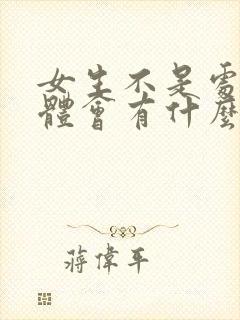 女生不是處
體會有什麼
蔣偉平